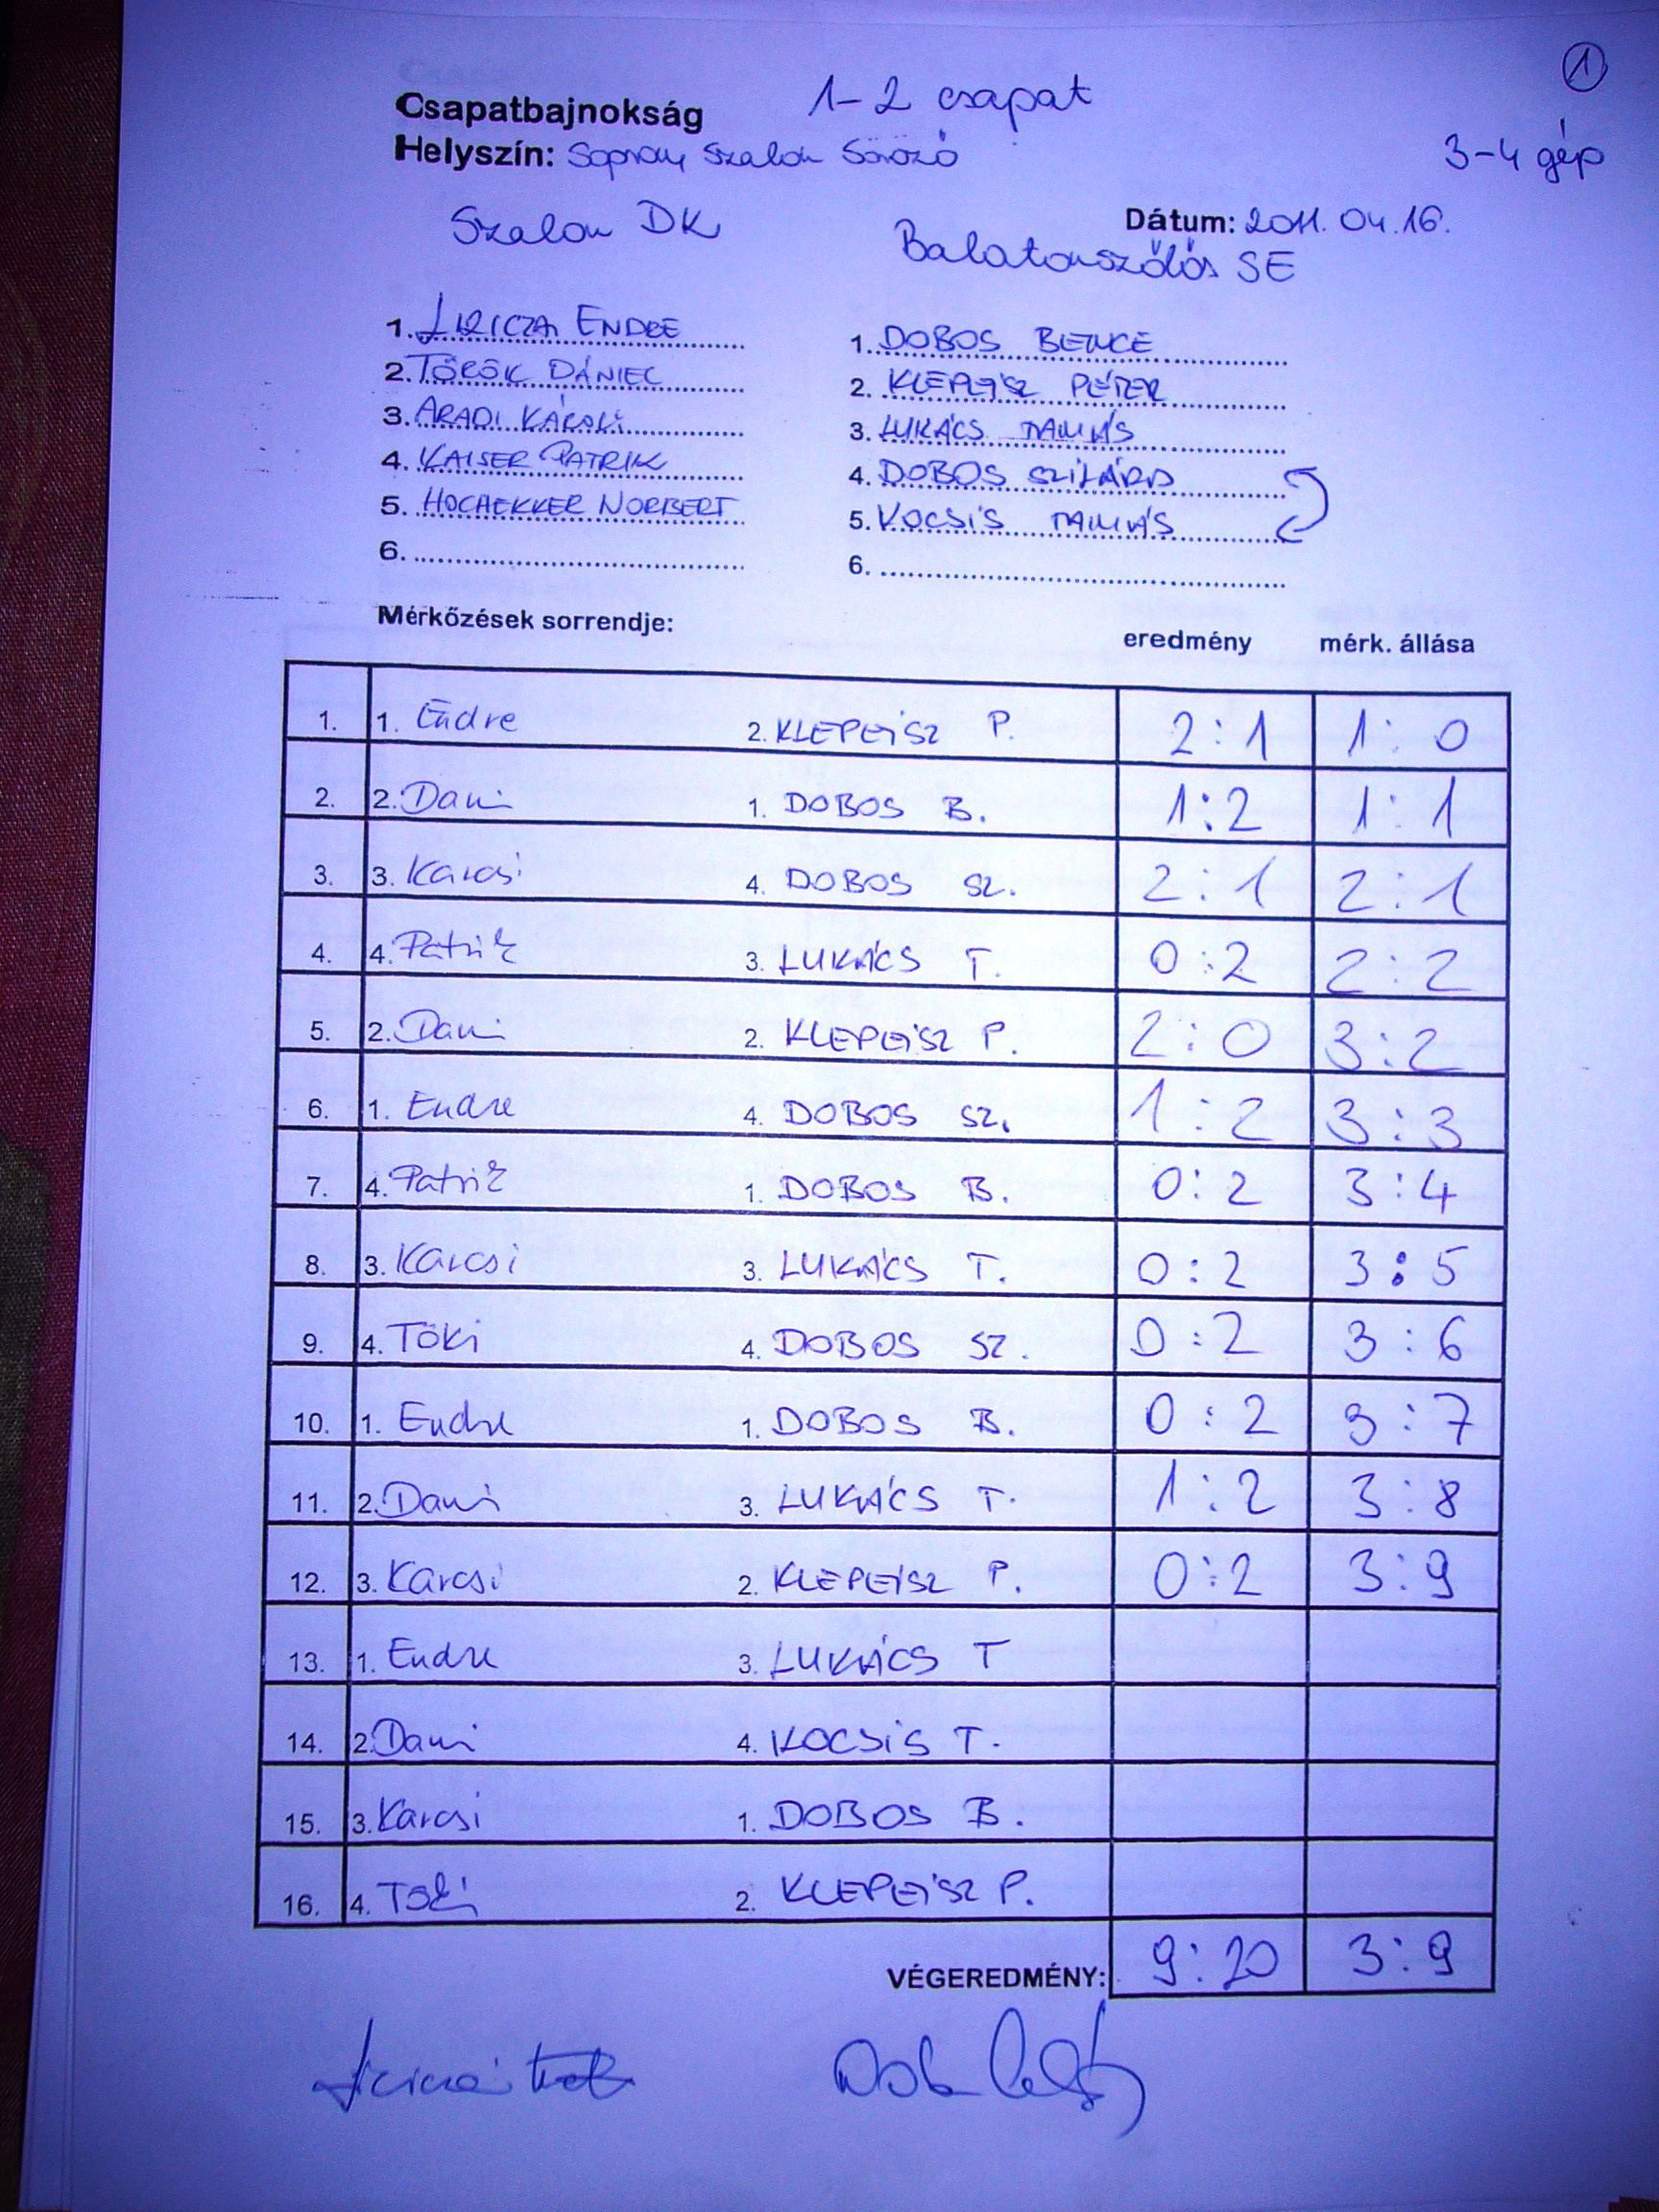 1
Csapatbajnokság 1-2 csapat
Helyszín: Sopron, Szalon Söröző 3-4 gép
Szalon DK
Dátum: 2011.04.16.
Balatonszőlős SE
1. LIRICZA ENDRE
2. TÖRÖK DÁNIEL
3. ARADI KÁROLY
4. KAISER PATRIK
5. HOCHEKKER NORBERT
6.
1. DOBOS BENCE
2. KLEPEISZ PÉTER
3. LUKÁCS TAMÁS
4. DOBOS SZILÁRD
5. KOCSIS TAMÁS
6.
Mérkőzések sorrendje:
eredmény mérk. állása
1. 1. Endre 2. KLEPEISZ P. 2:1 1:0
2. 2. Dani 1. DOBOS B. 1:2 1:1
3. 3. Karcsi 4. DOBOS SZ. 2:1 2:1
4. 4. Patrik 3. LUKÁCS T. 0:2 2:2
5. 2. Dani 2. KLEPEISZ P. 2:0 3:2
6. 1. Endre 4. DOBOS SZ. 1:2 3:3
7. 4. Patrik 1. DOBOS B. 0:2 3:4
8. 3. Karcsi 3. LUKÁCS T. 0:2 3:5
9. 4. Töki 4. DOBOS SZ. 0:2 3:6
10. 1. Endre 1. DOBOS B. 0:2 3:7
11. 2. Dani 3. LUKÁCS T. 1:2 3:8
12. 3. Karcsi 2. KLEPEISZ P. 0:2 3:9
13. 1. Endre 3. LUKÁCS T
14. 2. Dani 4. KOCSIS T.
15. 3. Karcsi 1. DOBOS B.
16. 4. Töki 2. KLEPEISZ P.
VÉGEREDMÉNY: 9:20 3:9